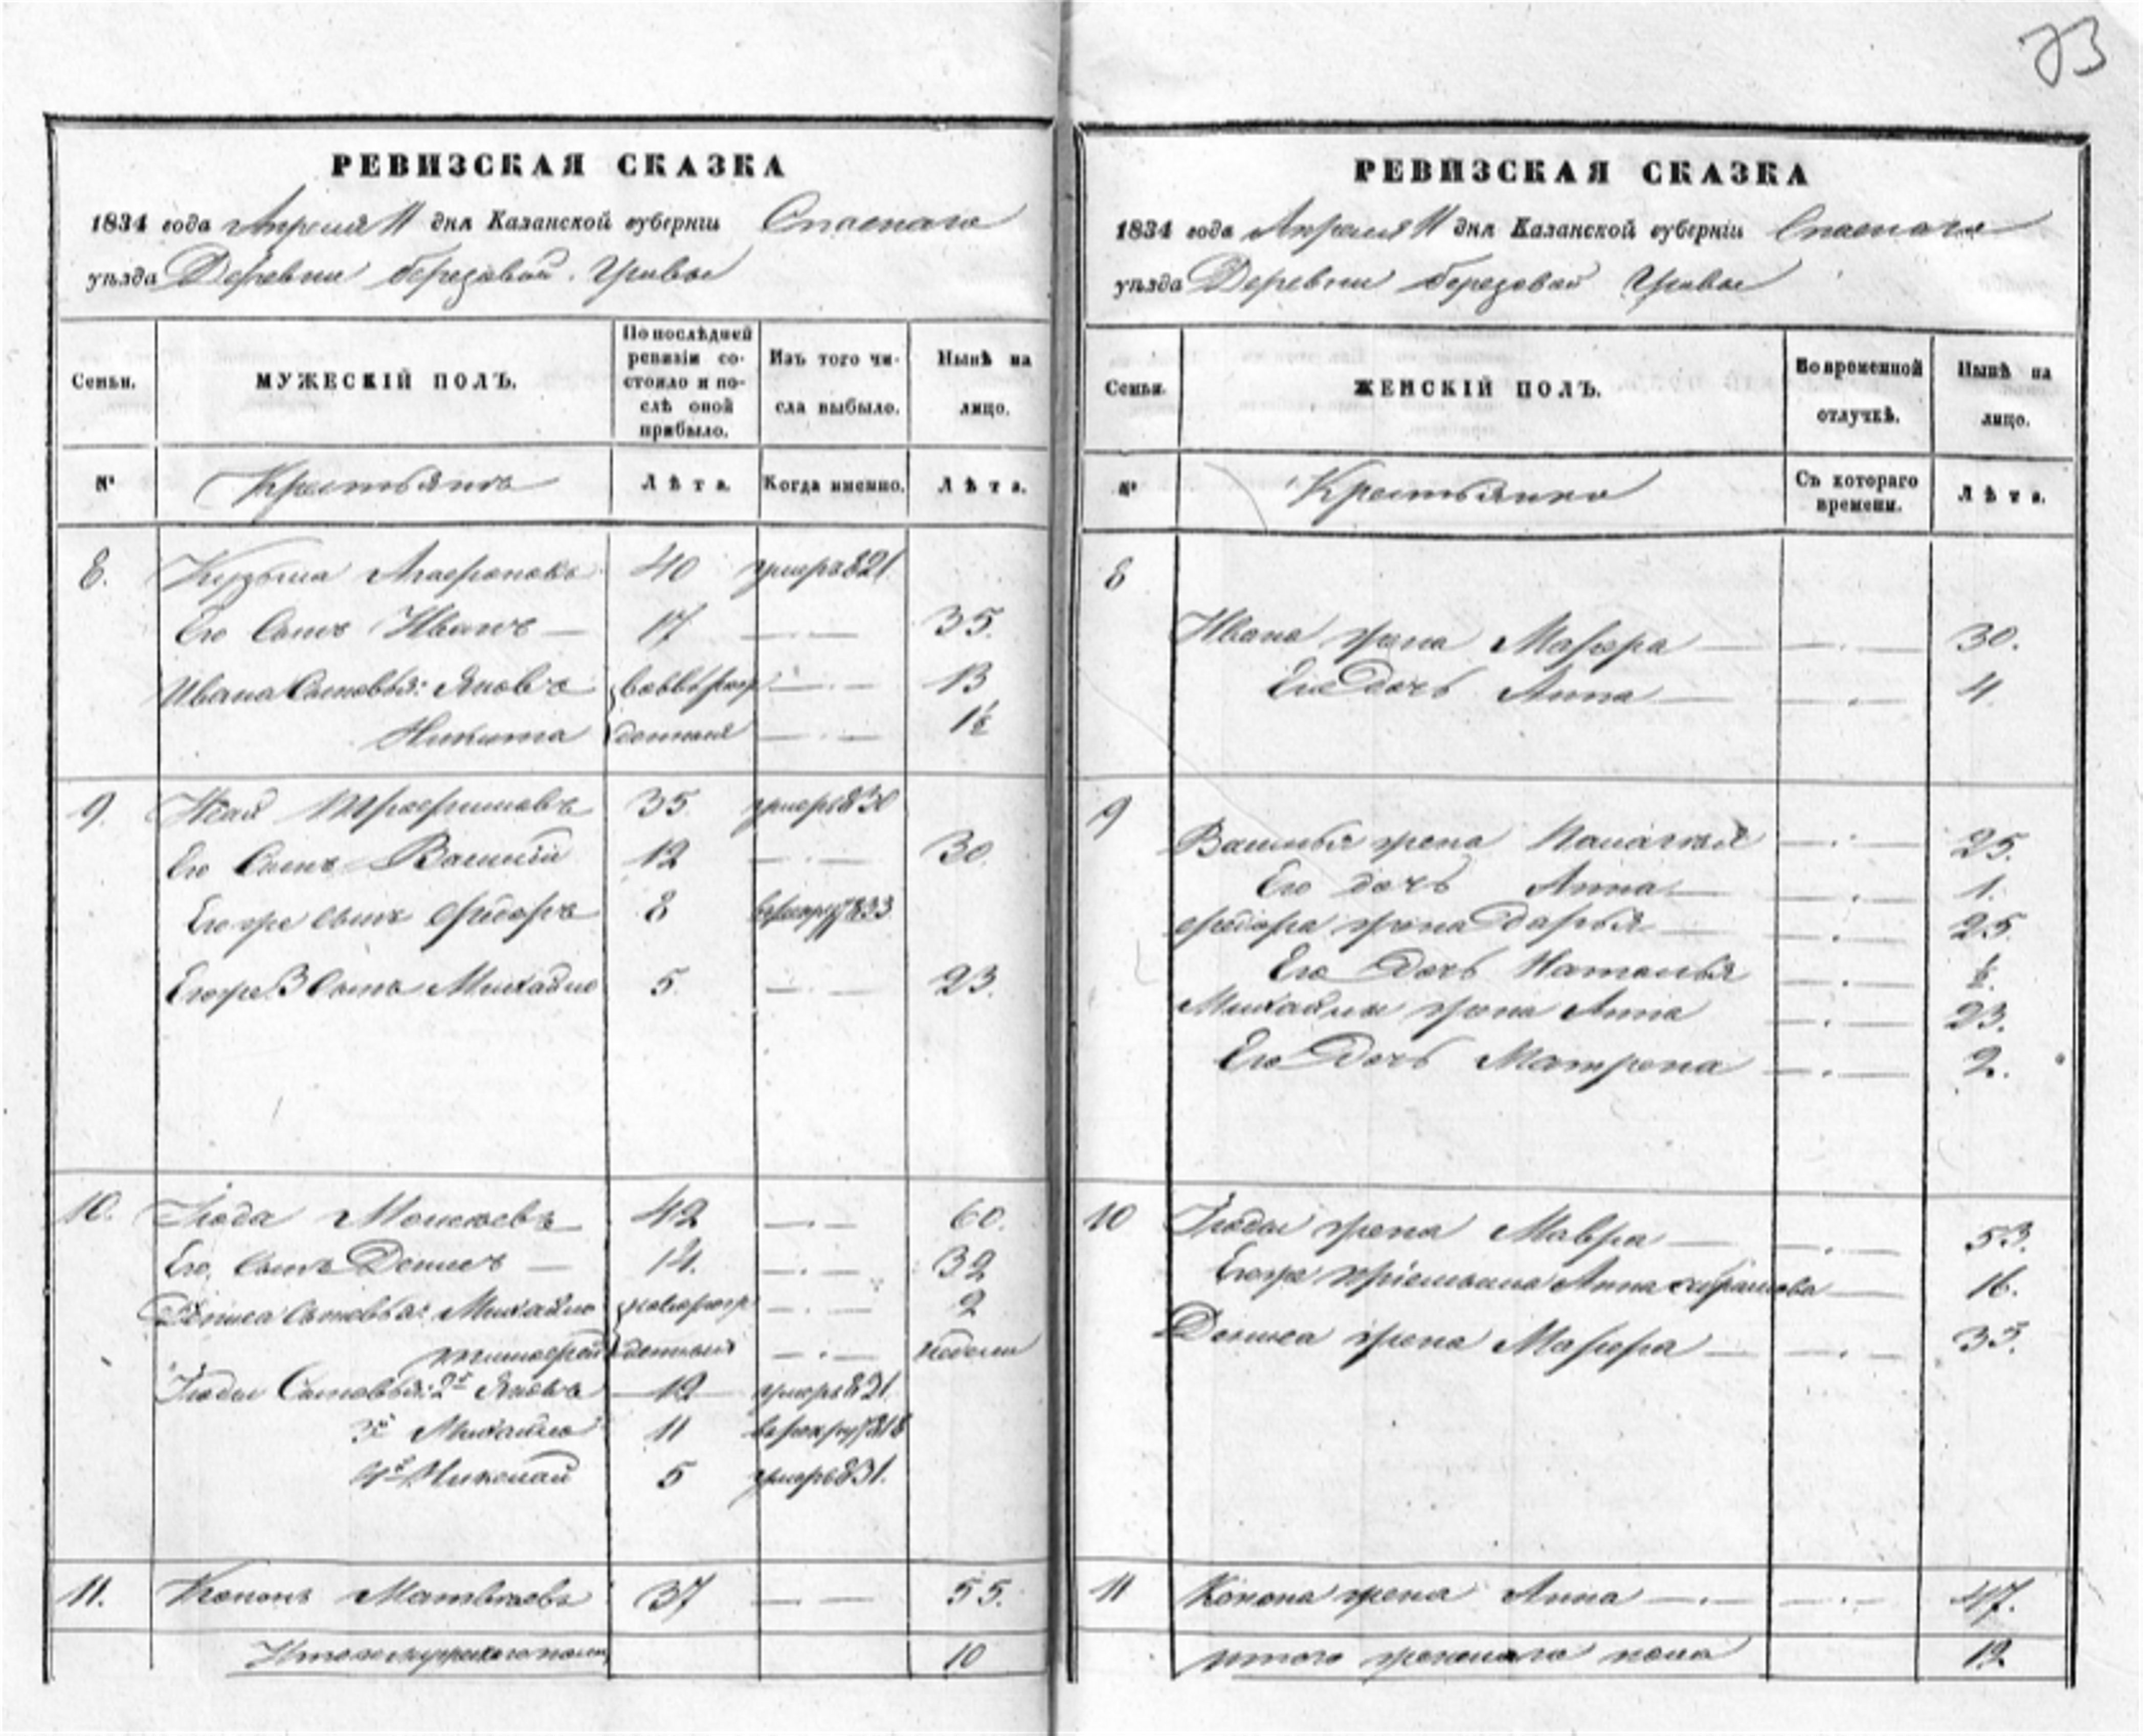 73
РЕВИЗСКАЯ СКАЗКА
1834 года Апреля 11 дня Казанской губерніи Спаскаго
уѣзда Деревни березовой Гривы
Семьи.
МУЖЕСКІЙ ПОЛЪ.
По послѣдней ревизіи состояло и послѣ оной прибыло.
Изъ того числа выбыло.
Нынѣ на лицо.
№
Крестьянъ
Лѣта.
Когда именно.
Лѣта.
8. Кузьма 40 умеръ 821
Его Сынъ Иванъ — 17 —·— 35.
Ивана Сыновья: Яковъ —·— 13
Никита —·— 1½
9. 35 умеръ 830
Его Сынъ Василій 12 —·— 30.
Его же сынъ Федоръ 8 833
Его же 3 Сынъ Михайло 5. —·— 23.
10. Іюда 42 —·— 60.
Его Сынъ Денисъ — 14. —·— 32
Дениса Сыновья: Михайло —·— 2
—·— недели
Іюды Сыновья: 2й Яковъ 12 умеръ 821.
3й Михайло 11 818
4й Николай 5 умеръ 831.
11. Кононъ Матвѣевъ 37 —·— 55.
Итого мужескаго пола 10
РЕВИЗСКАЯ СКАЗКА
1834 года Апреля 11 дня Казанской губерніи Спаскаго
уѣзда Деревни березовой Гривы
Семьи.
ЖЕНСКІЙ ПОЛЪ.
Во временной отлучкѣ.
Нынѣ на лицо.
№
Крестьянки
Съ котораго времени.
Лѣта.
8
Ивана жена Марфа — —·— 30.
Его Дочь Анна — —·— 4.
9
Василья жена —·— 25.
Его дочь Анна — —·— 1.
Федора жена Дарья — —·— 25.
Его Дочь Наталья —·— ½.
Михайлы жена Анна —·— 23.
Его Дочь Матрена —·— 2.
10 Іюды жена Мавра — —·— 53.
Его же Анна — 16.
Дениса жена Марфа — —·— 35.
11 Конона жена Анна —·— —·— 47.
итого женскаго пола 12